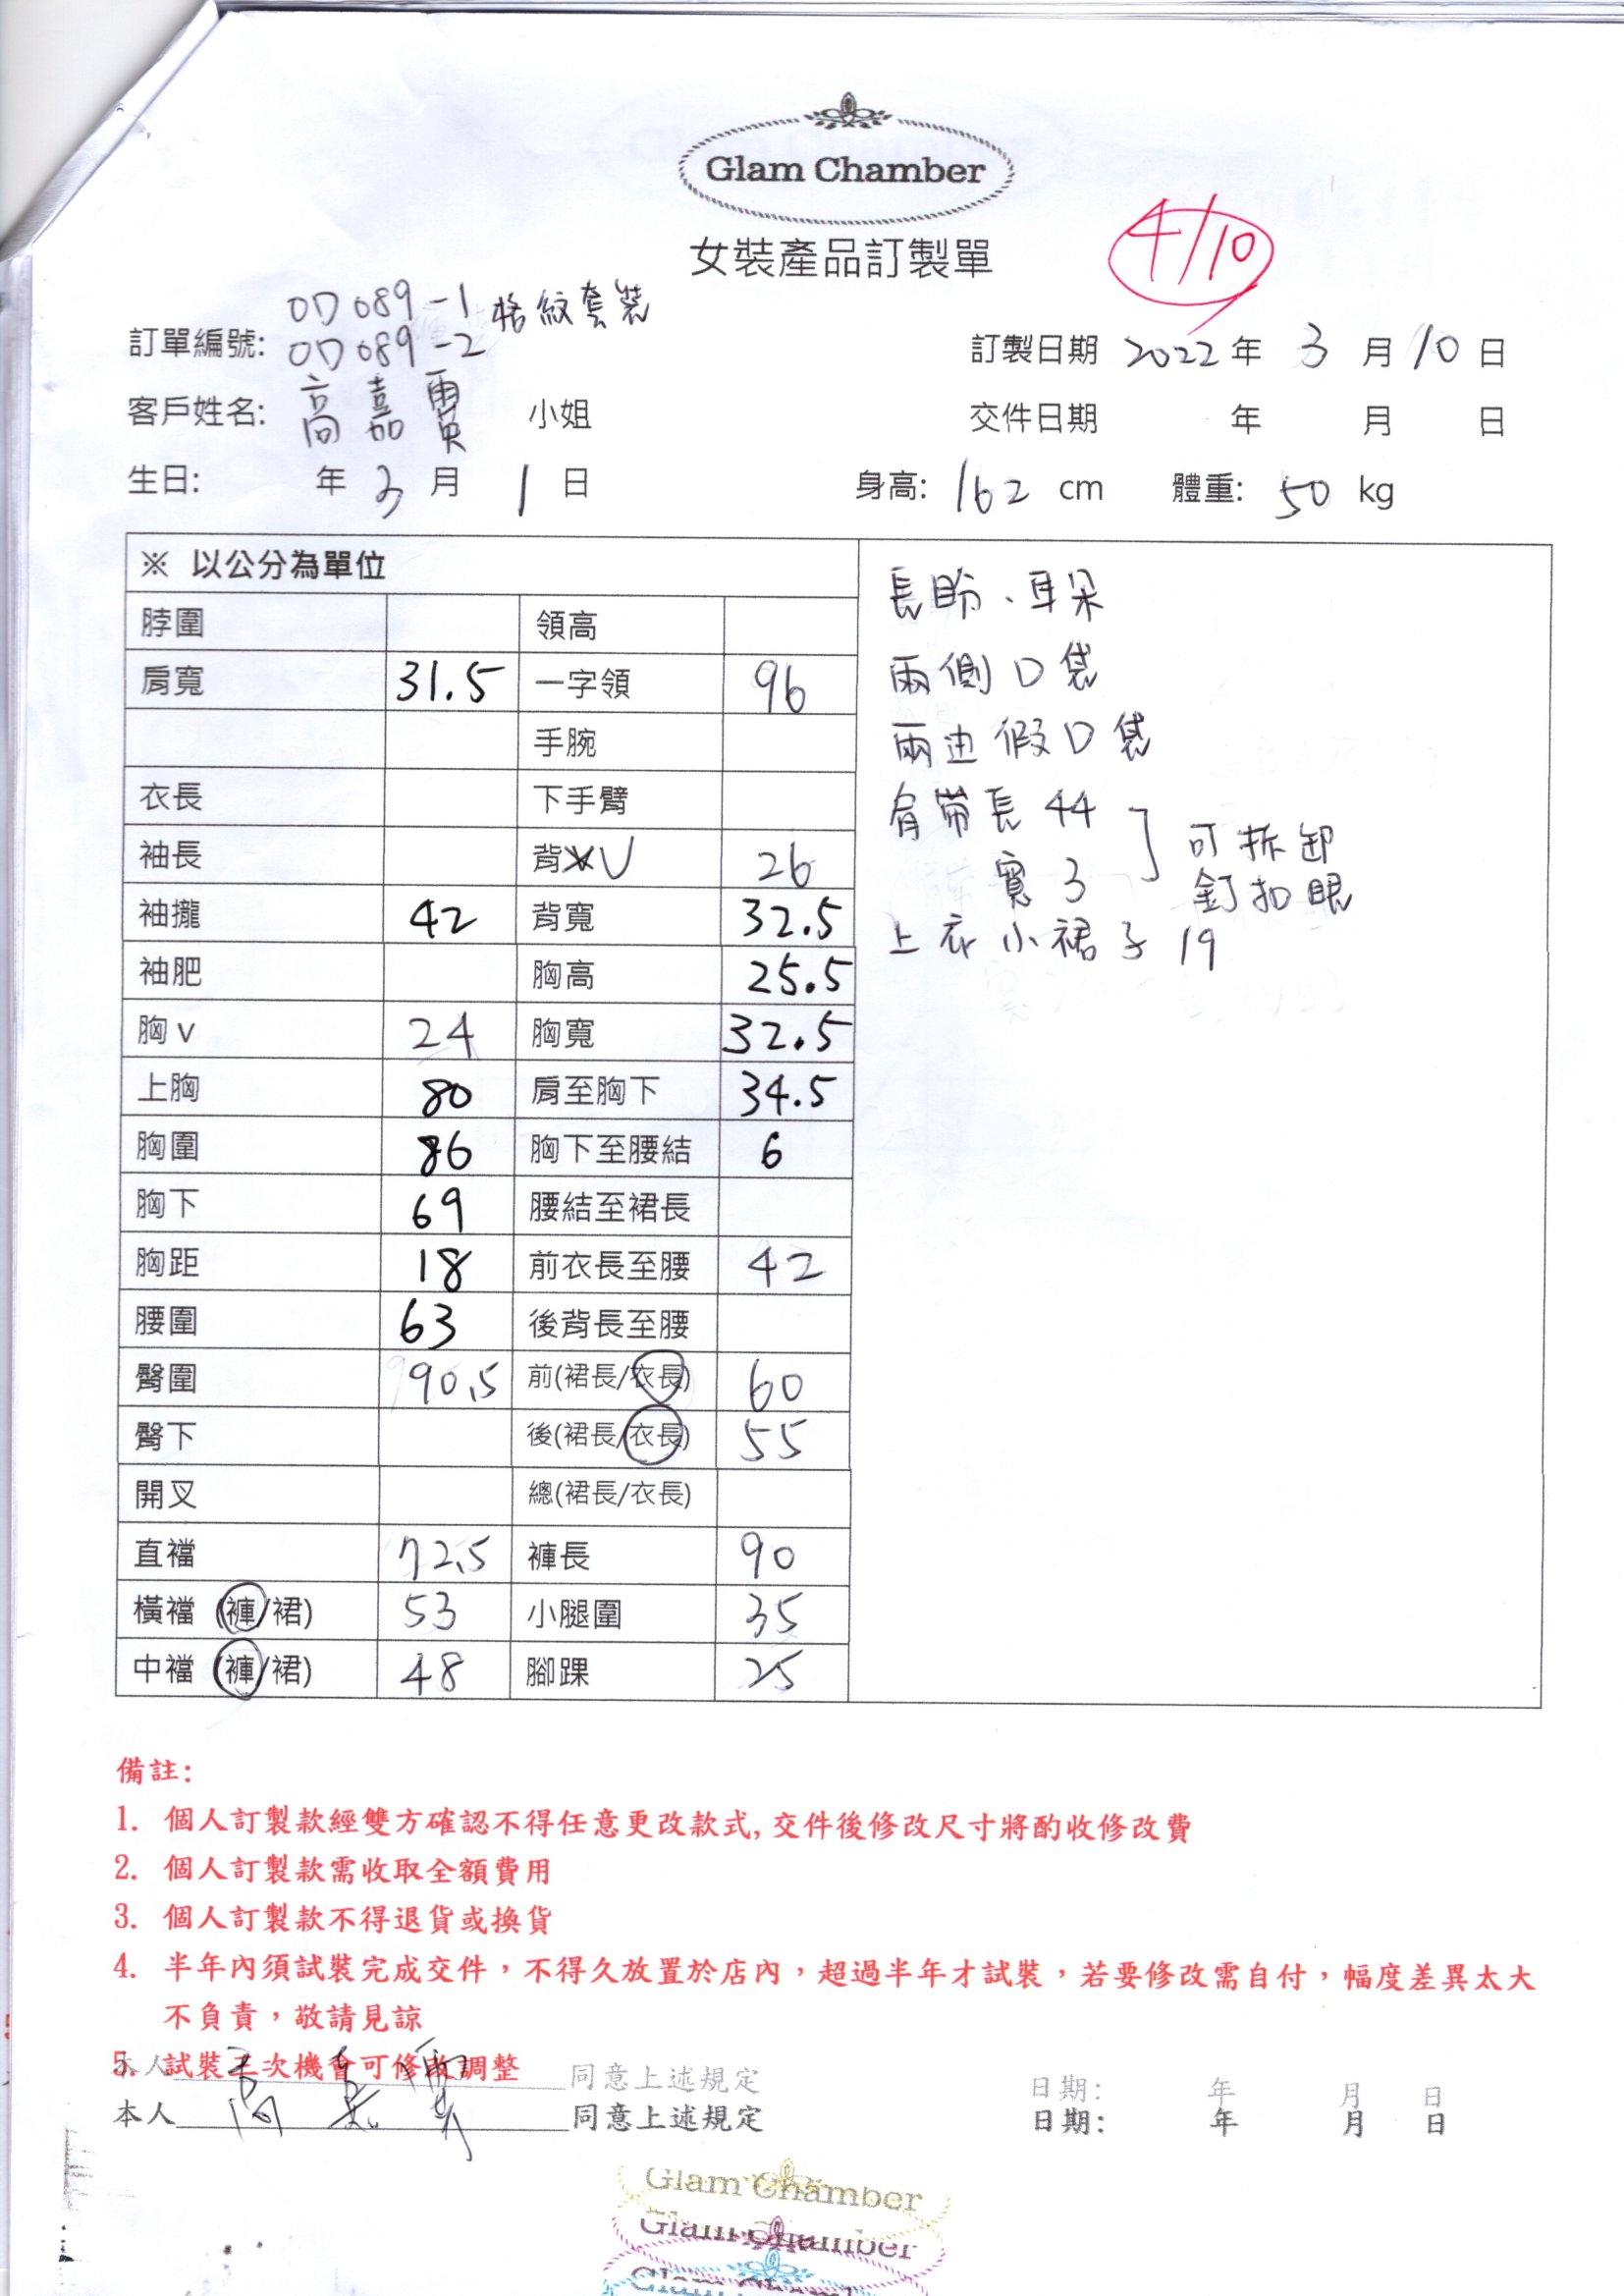 Glam Chamber
女裝產品訂製單
4/10
OD089-1 格紋套裝
訂單編號: OD089-2
訂製日期 2022 年 3 月 10 日
客戶姓名: 高嘉 小姐
交件日期 年 月 日
生日: 年 3 月 1 日
身高: 162 cm 體重: 50 kg
※ 以公分為單位
脖圍 領高
肩寬 31.5 一字領 96
手腕
衣長 下手臂
袖長 背V 26
袖攏 42 背寬 32.5
袖肥 胸高 25.5
胸v 24 胸寬 32.5
上胸 80 肩至胸下 34.5
胸圍 86 胸下至腰結 6
胸下 69 腰結至裙長
胸距 18 前衣長至腰 42
腰圍 63 後背長至腰
臀圍 90.5 前(裙長/衣長) 60
臀下 後(裙長/衣長) 55
開叉 總(裙長/衣長)
直襠 72.5 褲長 90
橫襠 (褲/裙) 53 小腿圍 35
中襠 (褲/裙) 48 腳踝 25
長 、耳朵
兩側口袋
兩边假口袋
肩帶長 44
寬 3
可拆卸
釘扣眼
上衣小裙子 19
備註:
1. 個人訂製款經雙方確認不得任意更改款式,交件後修改尺寸將酌收修改費
2. 個人訂製款需收取全額費用
3. 個人訂製款不得退貨或換貨
4. 半年內須試裝完成交件，不得久放置於店內，超過半年才試裝，若要修改需自付，幅度差異太大
不負責，敬請見諒
5. 試裝三次機會可修改調整
本人 同意上述規定 日期: 年 月 日
本人 同意上述規定 日期: 年 月 日
Glam Chamber
Glam Chamber
Glam Chamber